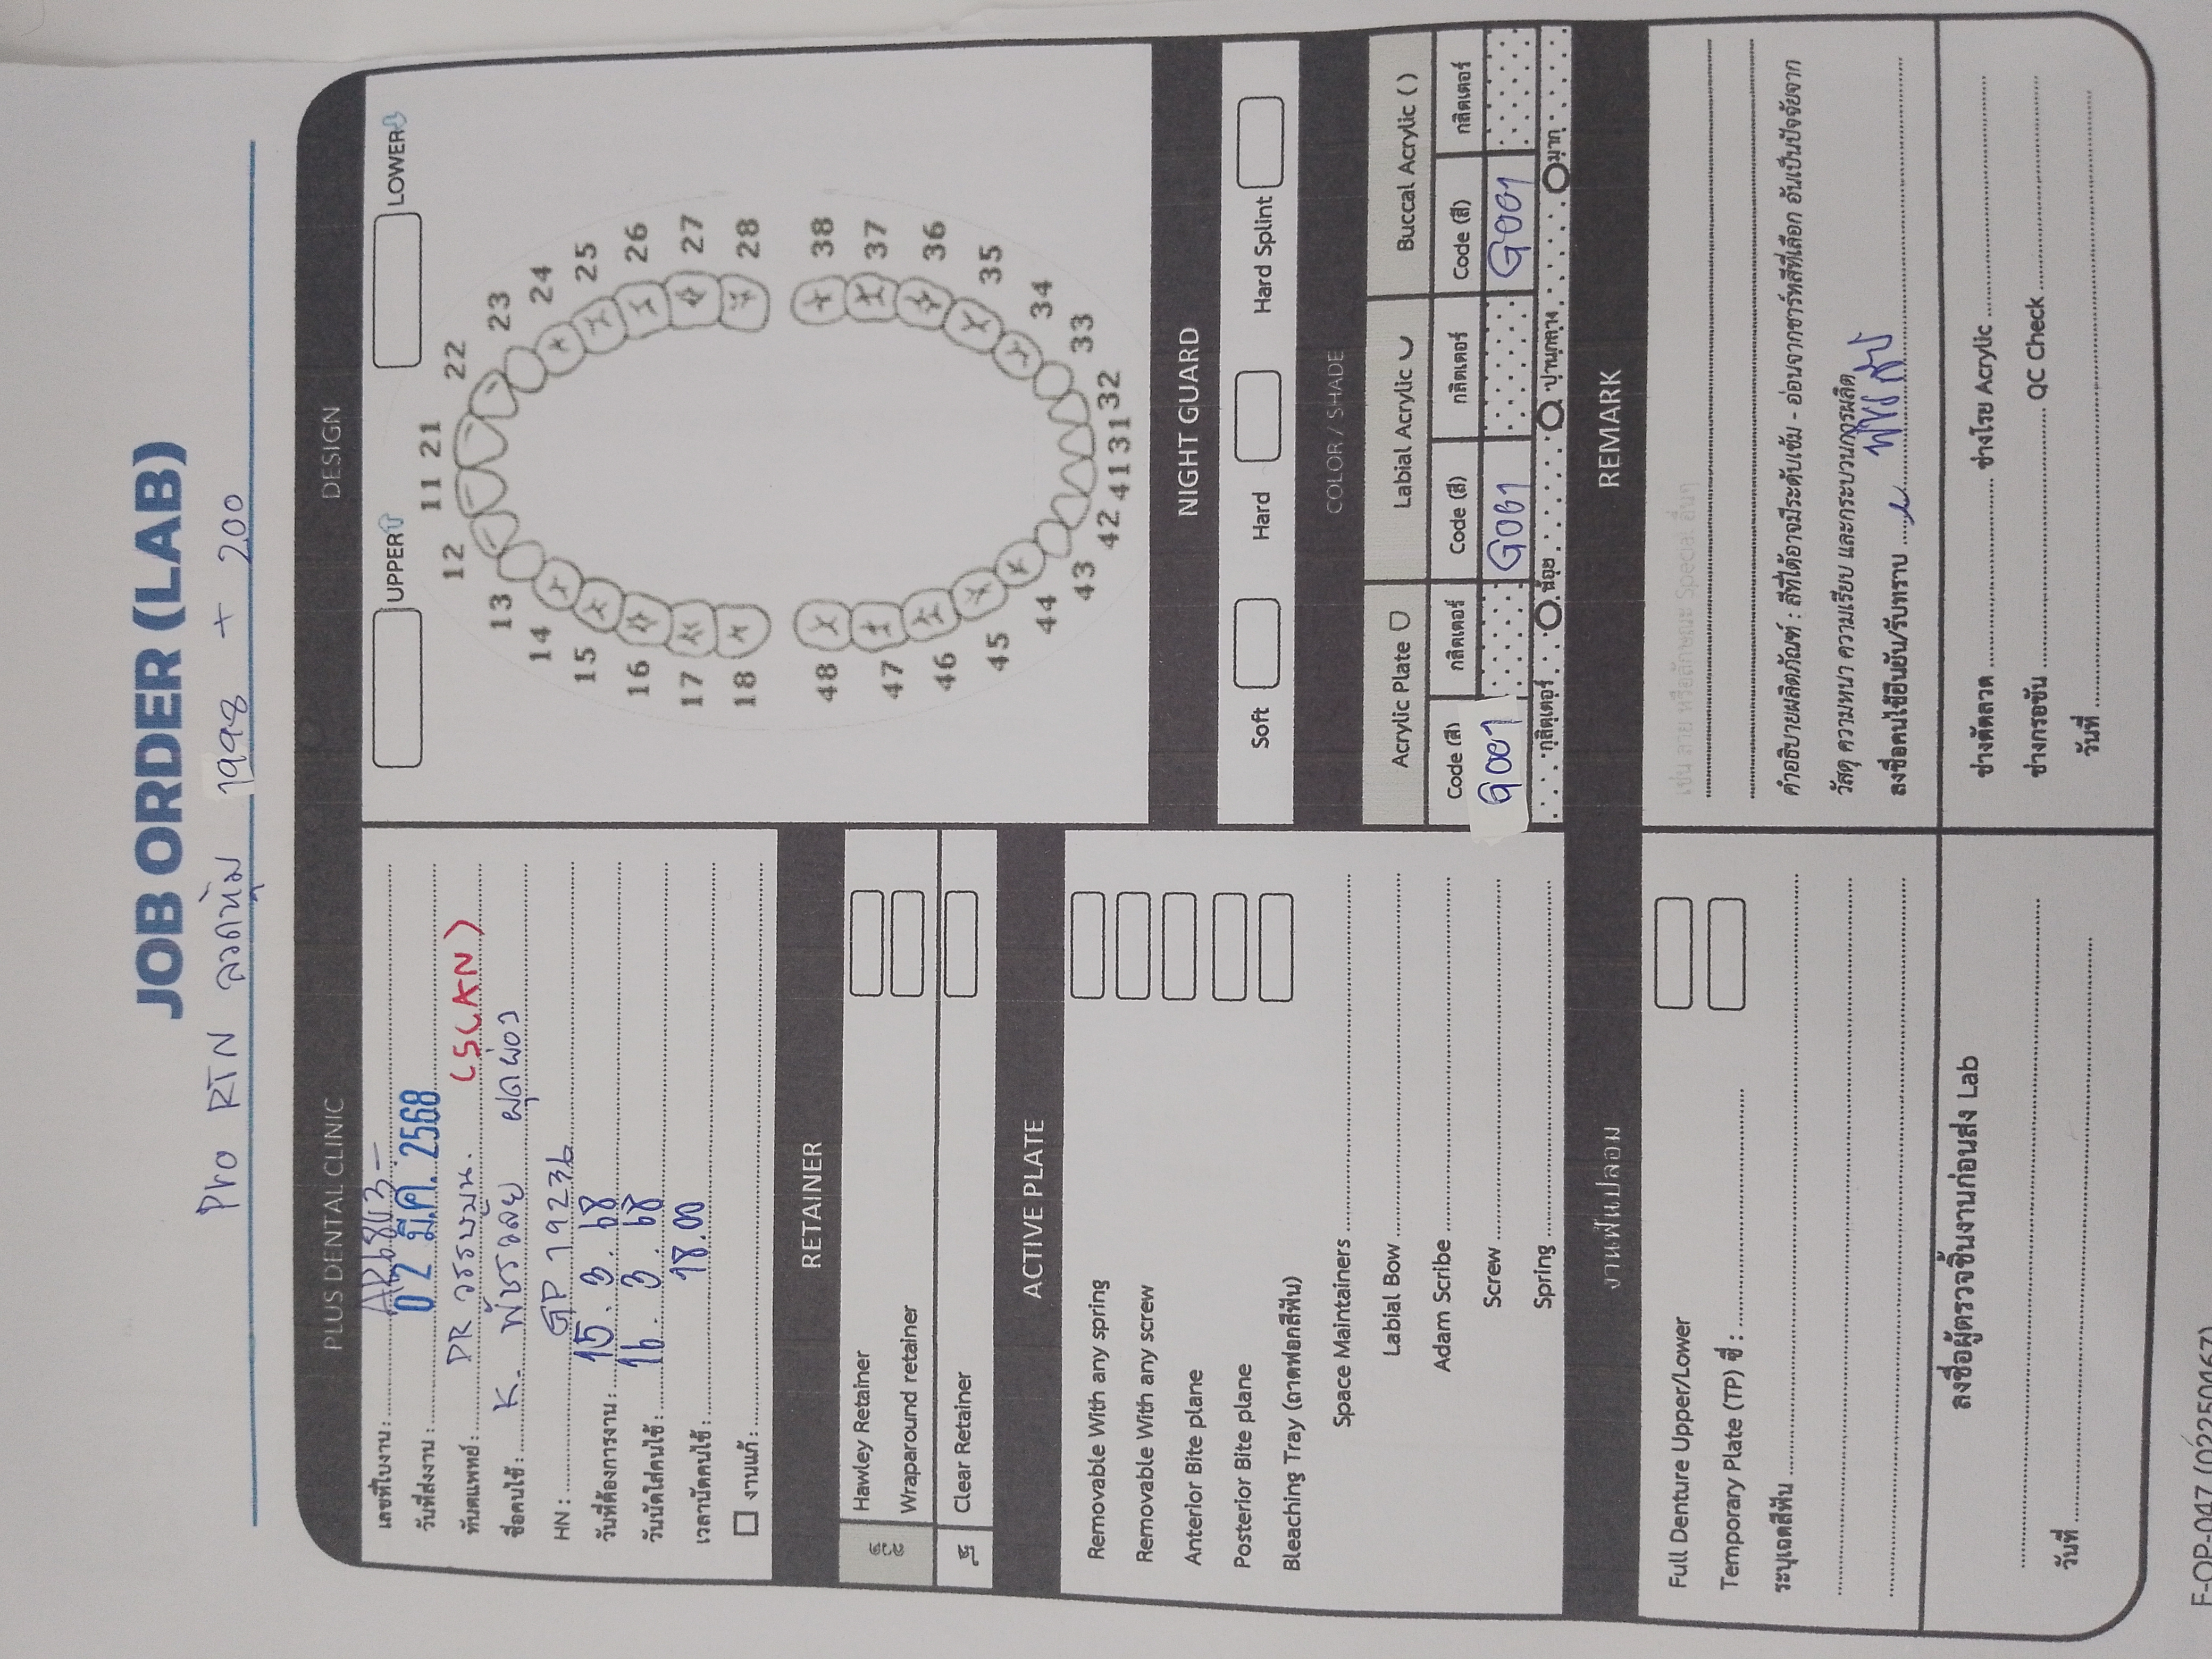 JOB ORDER (LAB)
Pro RTN ลวดหุ้ม 1998 + 200
PLUS DENTAL CLINIC
เลขที่ใบงาน :
วันที่ส่งงาน : 02 มี.ค. 2568
ทันตแพทย์ : DR (SCAN)
ชื่อคนไข้ : K. พัชรวลย ผุดผ่อง
HN : GP 19236
วันที่ต้องการงาน : 15 . 3 . 68
วันนัดใส่คนไข้ : 16 . 3 . 68
เวลานัดคนไข้ : 18.00
งานแก้ :
RETAINER
Hawley Retainer
Wraparound retainer
Clear Retainer
ACTIVE PLATE
Removable With any spring
Removable With any screw
Anterior Bite plane
Posterior Bite plane
Bleaching Tray (ถาดฟอกสีฟัน)
Space Maintainers
Labial Bow
Adam Scribe
Screw
Spring
งานฟันปลอม
Full Denture Upper/Lower
Temporary Plate (TP) ซี่ :
ระบุเฉดสีฟัน
ลงชื่อผู้ตรวจชิ้นงานก่อนส่ง Lab
วันที่
DESIGN
UPPER LOWER
11 21
12 22
13 23
14 24
15 25
16 26
17 27
18 28
48 38
47 37
46 36
45 35
44 34
43 33
42 41 31 32
NIGHT GUARD
Soft Hard Hard Splint
COLOR / SHADE
Acrylic Plate Labial Acrylic Buccal Acrylic ( )
Code (สี) กลิตเตอร์ Code (สี) กลิตเตอร์ Code (สี) กลิตเตอร์
G001 G001 G001
กลิตเตอร์ น้อย ปานกลาง มาก
REMARK
เช่น ลาย หรือลักษณะ Special อื่นๆ
คำอธิบายผลิตภัณฑ์ : สีที่ได้อาจมีระดับเข้ม - อ่อนจากชาร์ทสีที่เลือก อันเป็นปัจจัยจาก
วัสดุ ความหนา ความเรียบ และกระบวนการผลิต
ลงชื่อคนไข้ยืนยัน/รับทราบ
ช่างดัดลวด ช่างโรย Acrylic
ช่างกรอขัน QC Check
วันที่
F-OP-047 (02250467)